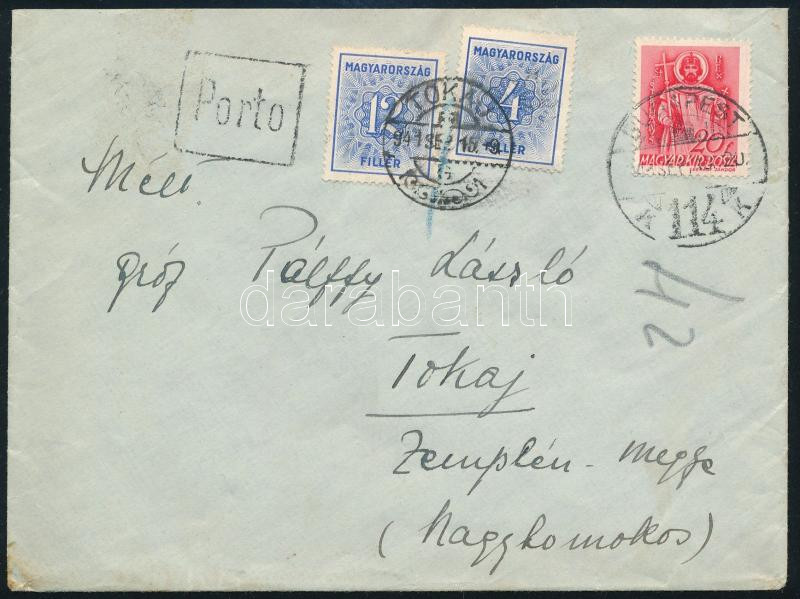 Porto
MAGYARORSZÁG
12
FILLÉR
MAGYARORSZÁG
4
FILLÉR
TOKAJ
941 SE 15.-9.
REX
20
MAGY.KIR.POSTA
BUDAPEST
114
K K
42
Mélt
gróf Pálffy László
Tokaj
Zemplén-megye
(Nagyhomokos)
darabanth